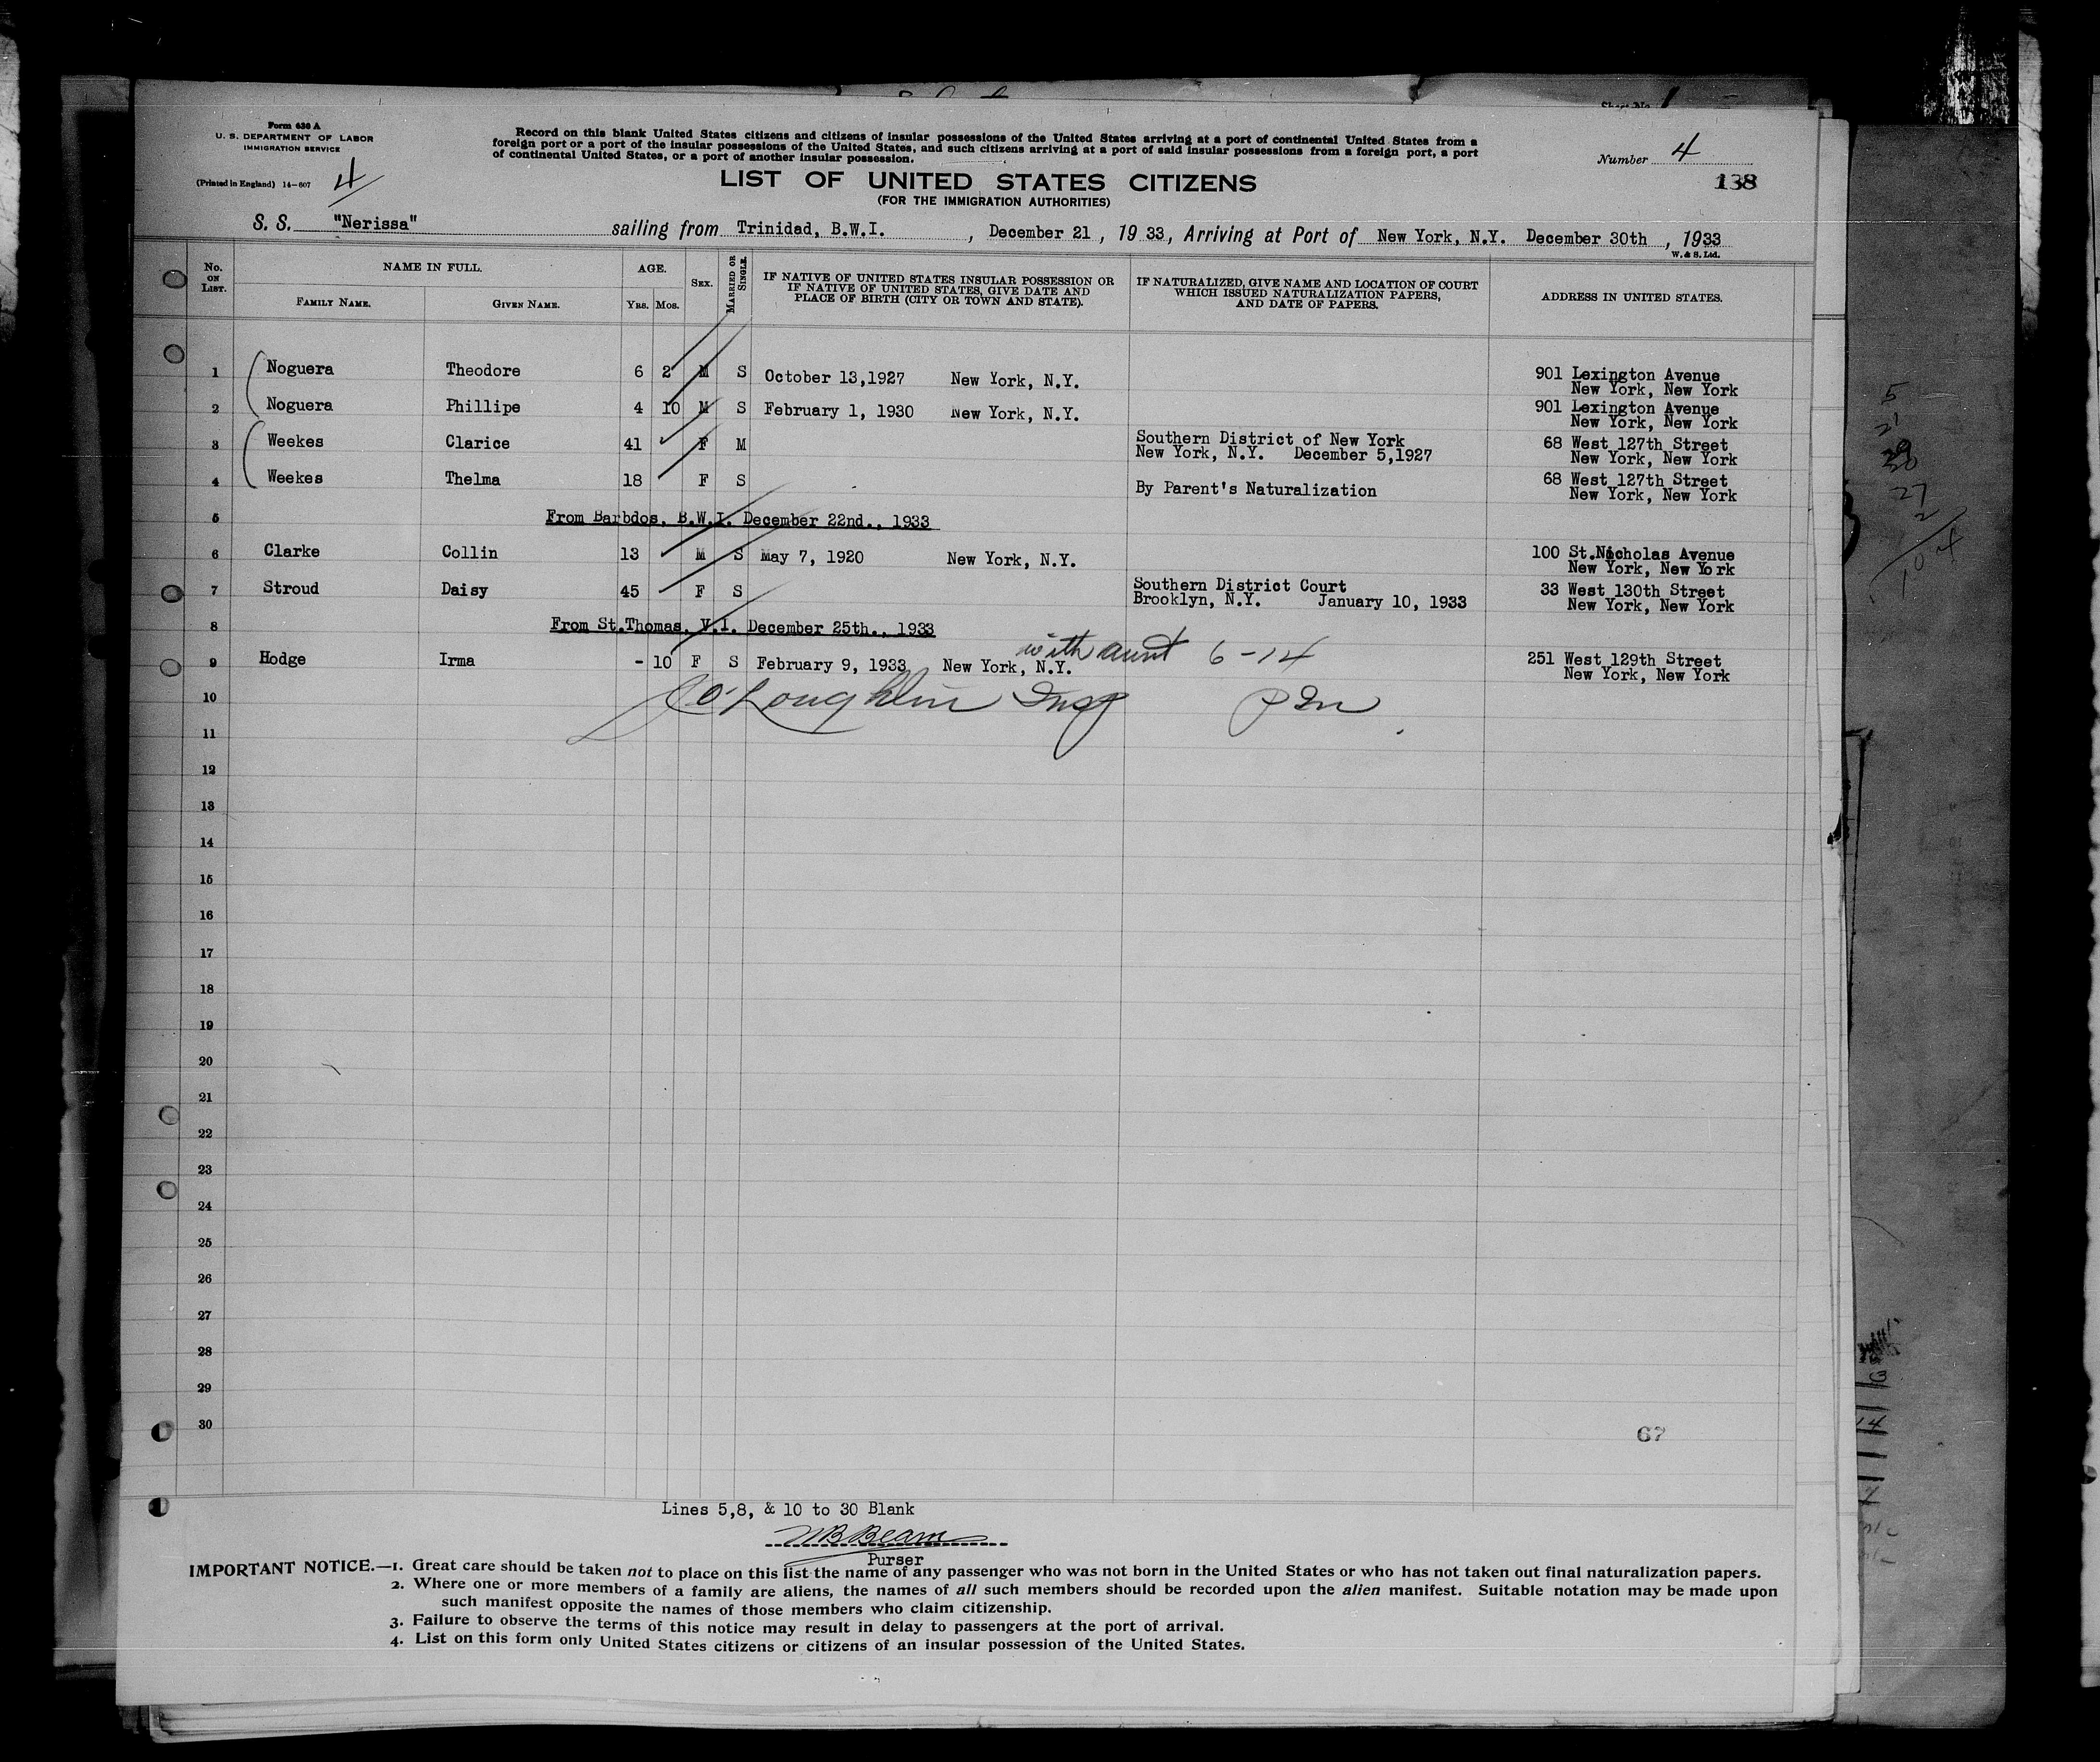 Form 630 A
U. S. DEPARTMENT OF LABOR
IMMIGRATION SERVICE
(Printed in England) 14-607
4
Record on this blank United States citizens and citizens of insular possessions of the United States arriving at a port of continental United States from a
foreign port or a port of the insular possessions of the United States, and such citizens arriving at a port of said insular possessions from a foreign port, a port
of continental United States, or a port of another insular possession.
Number 4
138
LIST OF UNITED STATES CITIZENS
(FOR THE IMMIGRATION AUTHORITIES)
S. S. "Nerissa" sailing from Trinidad, B.W.I. , December 21 , 19 33, Arriving at Port of New York, N.Y. December 30th , 1933
W. & S. Ltd.
No. ON LIST. NAME IN FULL. AGE. SEX. MARRIED OR SINGLE. IF NATIVE OF UNITED STATES INSULAR POSSESSION OR IF NATIVE OF UNITED STATES, GIVE DATE AND PLACE OF BIRTH (CITY OR TOWN AND STATE). IF NATURALIZED, GIVE NAME AND LOCATION OF COURT WHICH ISSUED NATURALIZATION PAPERS, AND DATE OF PAPERS. ADDRESS IN UNITED STATES.
FAMILY NAME. GIVEN NAME. YRS. MOS.
1 Noguera Theodore 6 2 M S October 13,1927 New York, N.Y. 901 Lexington Avenue
New York, New York
2 Noguera Phillipe 4 10 M S February 1, 1930 New York, N.Y. 901 Lexington Avenue
New York, New York
3 Weekes Clarice 41 F M Southern District of New York 68 West 127th Street
New York, N.Y. December 5,1927 New York, New York
4 Weekes Thelma 18 F S By Parent's Naturalization 68 West 127th Street
New York, New York
5 From Barbdos, B.W.I. December 22nd., 1933
6 Clarke Collin 13 M S May 7, 1920 New York, N.Y. 100 St.Nicholas Avenue
New York, New York
7 Stroud Daisy 45 F S Southern District Court 33 West 130th Street
Brooklyn, N.Y. January 10, 1933 New York, New York
8 From St.Thomas, V.I. December 25th., 1933
with aunt 6-14
9 Hodge Irma - 10 F S February 9, 1933 New York, N.Y. 251 West 129th Street
New York, New York
10 J O'Loughlin Insp
11
12
13
14
15
16
17
18
19
20
21
22
23
24
25
26
27
28
29
30
67
Lines 5,8, & 10 to 30 Blank
Purser
IMPORTANT NOTICE.—1. Great care should be taken not to place on this list the name of any passenger who was not born in the United States or who has not taken out final naturalization papers.
2. Where one or more members of a family are aliens, the names of all such members should be recorded upon the alien manifest. Suitable notation may be made upon
such manifest opposite the names of those members who claim citizenship.
3. Failure to observe the terms of this notice may result in delay to passengers at the port of arrival.
4. List on this form only United States citizens or citizens of an insular possession of the United States.